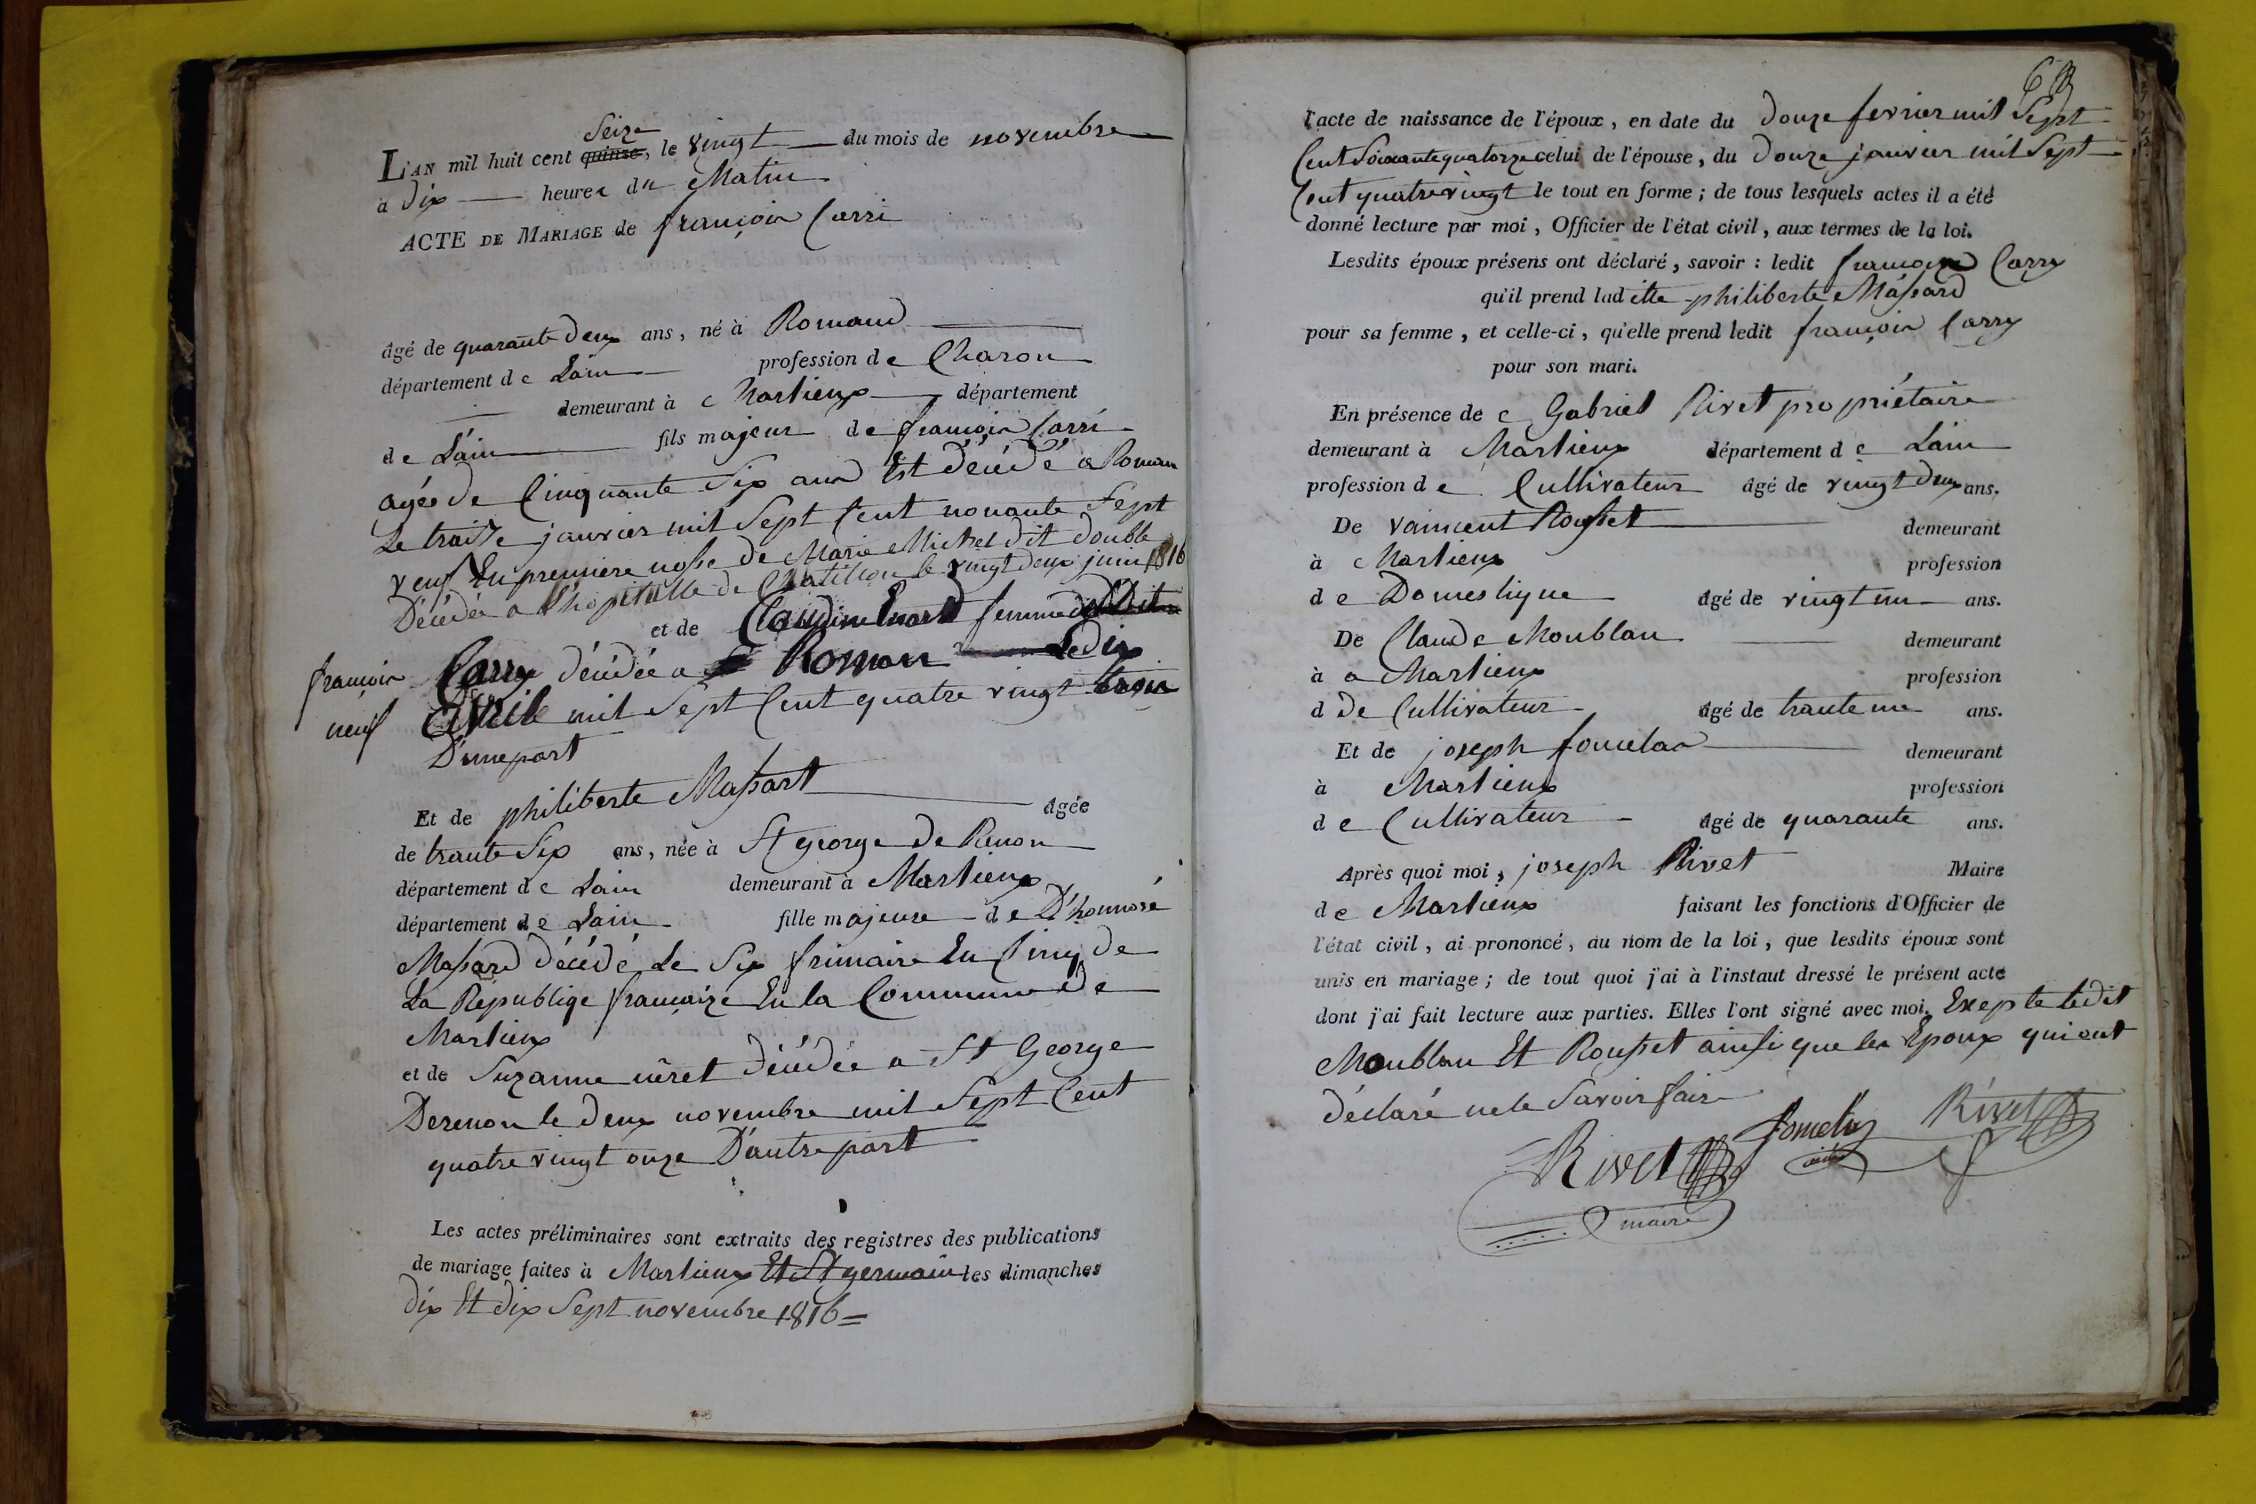 Seize
L'AN mil huit cent quinze, le vingt du mois de novembre
a dix heures du Matin
ACTE DE MARIAGE de françois Carri
âgé de quarante deux ans, né à Romand
département de Lain profession de Charon
demeurant à Marlieux département
de Lain fils majeur de françois Carri
agée de Cinquante Six ans Est décédé a Roman
Le traize janvier mil Sept Cent nonante Sept
veuf En première nosse de Marie Michel dit double
Décédée a L'hopitalle de Chatillon le vingt deux juin 1816
et de Claudine Evard femme dudit
françois Carry décédée a Roman Le dix
neuf Avril mil Sept Cent quatre vingt trois
D'une part
Et de philiberte Massart âgée
de trante Six ans, née à St george de Renon
département de Lain demeurant à Marlieux
département de Lain fille majeure de D'honnoré
Massard décédé Le Six frimaire En Cinq de
La Républiqe françaize En la Commune de
Marlieux
et de Suzanne néret décédée a St George
Derenon le deux novembre mil Sept Cent
quatre vingt onze D'autre part
Les actes préliminaires sont extraits des registres des publications
de mariage faites à Marlieux Et St germain les dimanches
dix Et dix Sept novembre 1816 =
l'acte de naissance de l'époux, en date du douze fevrier mil Sept
Cent Soixante quatorze celui de l'épouse, du douze janvier mil Sept
Cent quatre vingt le tout en forme ; de tous lesquels actes il a été
donné lecture par moi, Officier de l'état civil, aux termes de la loi.
Lesdits époux présens ont déclaré, savoir : ledit françois Carry
qu'il prend laditte philiberte Massard
pour sa femme, et celle-ci, qu'elle prend ledit françois Carry
pour son mari.
En présence de Gabriel Rivet propriétaire
demeurant à Marlieux département de Lain
profession de Cultivateur âgé de vingt deux ans.
De vaincent Rousset demeurant
à Marlieux profession
de Domestique âgé de vingt un ans.
De Claude Moublan demeurant
à a Marlieux profession
d De Cultivateur âgé de trante un ans.
Et de joseph fomelas demeurant
à Marlieux profession
de Cultivateur âgé de quarante ans.
Après quoi moi, joseph Rivet Maire
de Marlieux faisant les fonctions d'Officier de
l'état civil, ai prononcé, au nom de la loi, que lesdits époux sont
unis en mariage ; de tout quoi j'ai à l'instaut dressé le présent acte
dont j'ai fait lecture aux parties. Elles l'ont signé avec moi. Exepte ledit
Moublan Et Rousset ainsi que les Epoux qui ont
déclaré ne le Savoir faire
Rivet
Rivet
maire